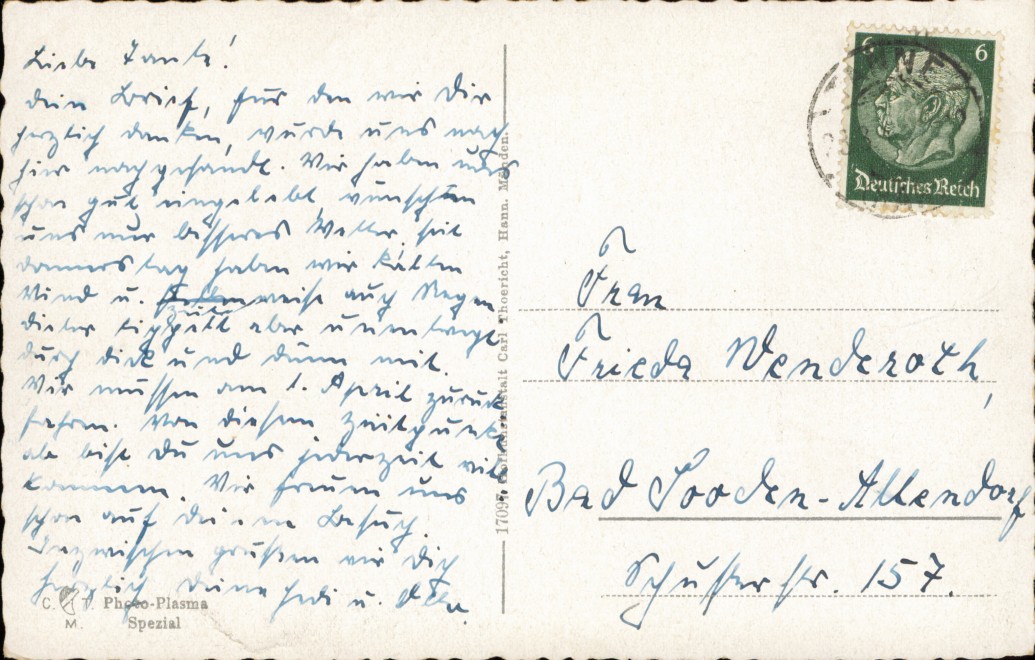 Liebe Tante!
Dein Brief, für den wir Dir
herzlich danken, wurde uns nach
hier nachgesandt. Wir haben uns
schon gut eingelebt, wünschen
uns nur besseres Wetter, seit
donnerstag haben wir kalten
Wind u. zeitweise auch Regen,
dieter aber unentwegt
durch dick und dünn mit.
Wir müssen am 1. April zurück
fahren. Von diesem Zeitpunkt
ab bist Du uns jederzeit will
kommen. Wir freuen uns
schon auf deinen Besuch.
Inzwischen grüßen wir Dich
herzlich deine Hedi u.
C. T. Photo-Plasma
M. Spezial
17095 Carl Thoericht, Hann. Münden.
6 6
Deutsches Reich
Frau
Frieda Wenderoth,
Bad Sooden-Allendorf
Schusterstr. 157.